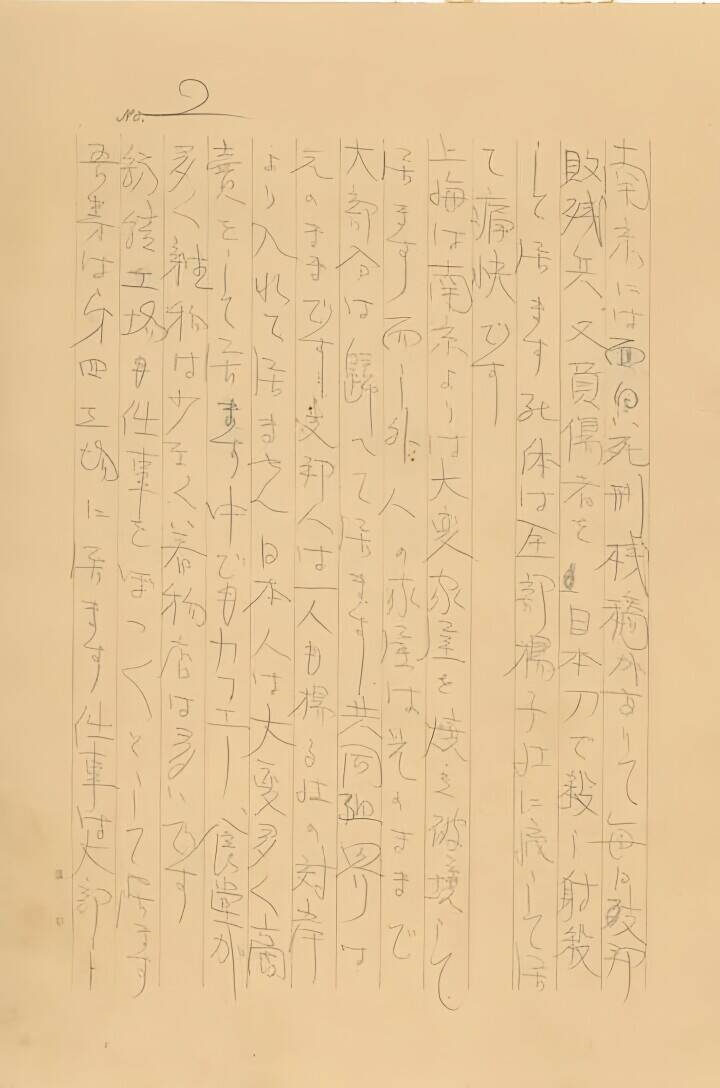 No. 2
南京には面白い死刑桟橋がありて毎日支那
敗残兵又負傷者を日本刀で殺し射殺
して居ます死体は全部揚子江に流して居
て痛快です
上海は南京よりは大変家屋を焼き破壊して
居ます而し外人の家屋は元のままで
大部分は歸へて居ます共同租界は
元のままです支那人は一人も揚子江の対岸
より入れて居ません日本人は大変多く商
賣をして居ます中でもカフエー、食堂が
多く雑物は少なく着物店は多いです
紡績工場も仕事をぼつ〱して居ます
吾等は第四工場に居ます仕事は大部し